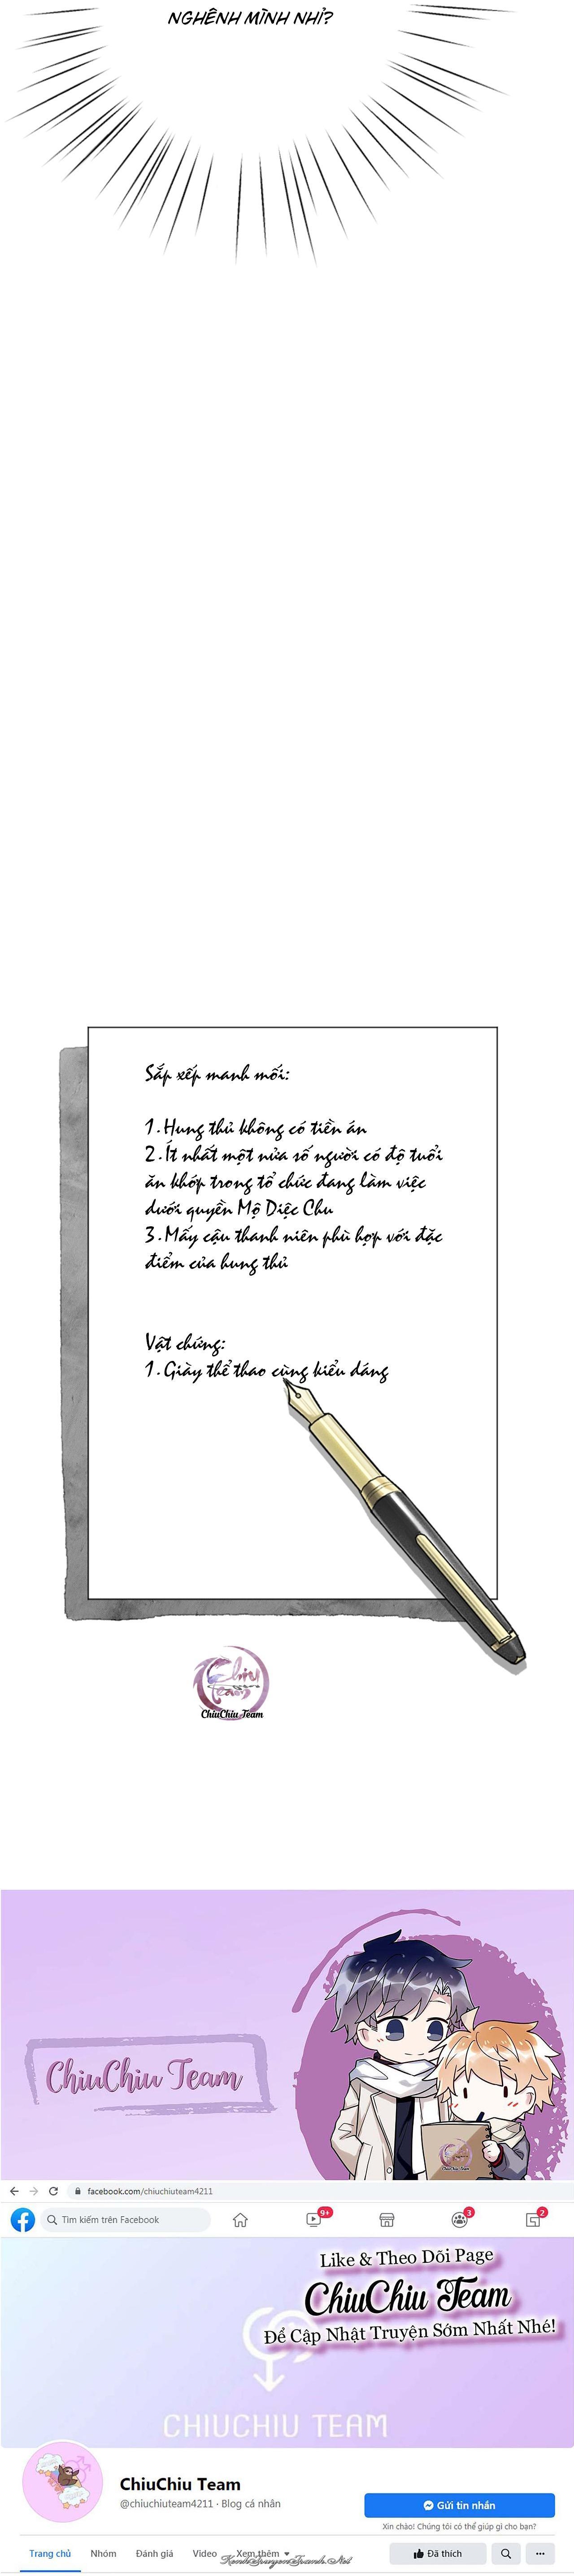 NGHÊNH MÌNH NHỈ?
Sắp xếp manh mối:
1. Hung thủ không có tiền án
2. Ít nhất một nửa số người có độ tuổi
ăn khớp trong tổ chức đang làm việc
dưới quyền Mộ Diệc Chu
3. Mấy cậu thanh niên phù hợp với đặc
điểm của hung thủ
Vật chứng:
1. Giày thể thao cùng kiểu dáng
Chiu
Team
ChiuChiu Team
ChiuChiu Team
facebook.com/chiuchiuteam4211
Tìm kiếm trên Facebook
9+
3
2
Like & Theo Dõi Page
ChiuChiu Team
Để Cập Nhật Truyện Sớm Nhất Nhé!
CHIUCHIU TEAM
ChiuChiu Team
@chiuchiuteam4211 · Blog cá nhân
Gửi tin nhắn
Xin chào! Chúng tôi có thể giúp gì cho bạn?
Trang chủ Nhóm Đánh giá Video Xem thêm Đã thích
KenhTruyenTranh.Net